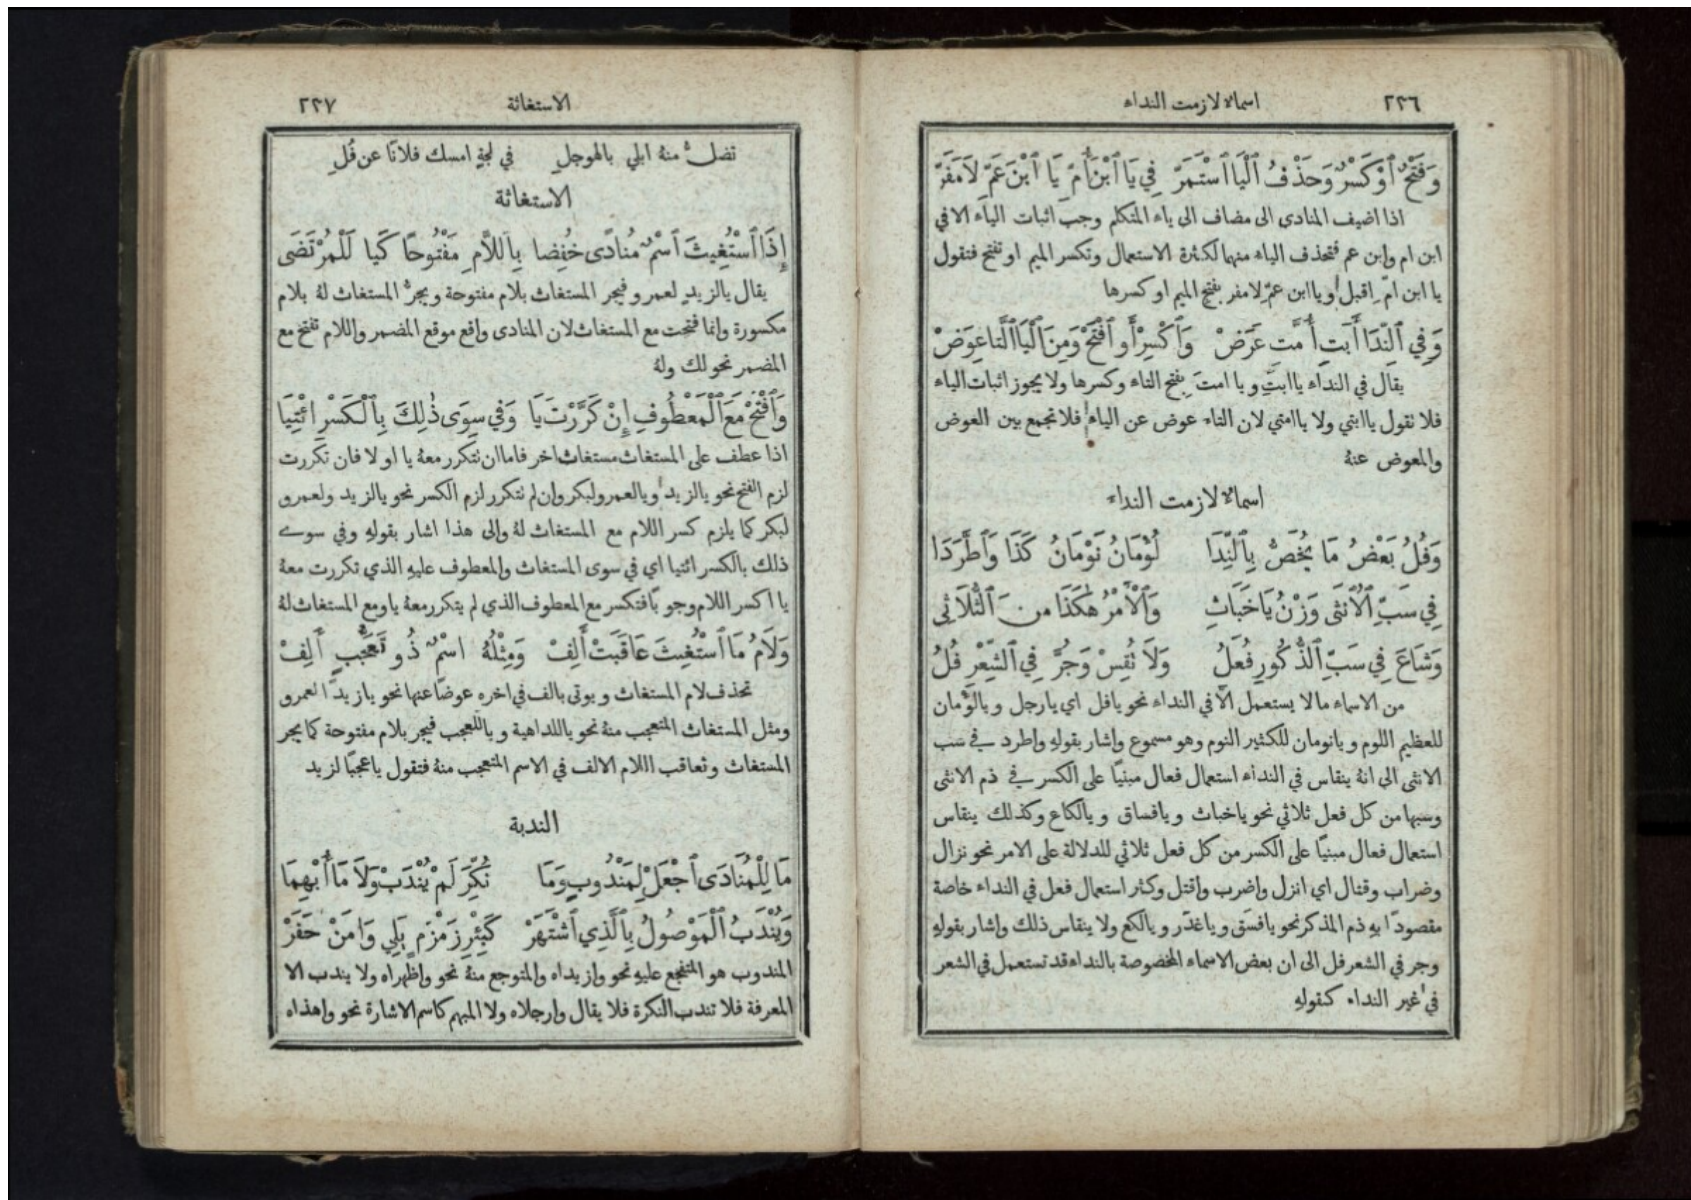 ٢٢٦ اسماء لازمت النداء
وَفَتْحٌ اَوْ كَسْرٌ وَحَذْفُ ٱلْيَا ٱسْتَمَرّْ فِي يَا ٱبْنَ أُمَّ يَا ٱبْنَ عَمَّ لَا مَفَرّْ
اذا اضيف المنادى الى مضاف الى ياء المتكلم وجب اثبات الياء الا في
ابن ام وابن عم فتحذف الياء منهما لكثرة الاستعمال وتكسر الميم او تفتح فتقول
يا ابن امَّ اقبل ويا ابن عمَّ لا مفر بفتح الميم او كسرها
وَفِي ٱلنِّدَا أَبَتِ أُمَّتِ عَرَضْ وَٱكْسِرْ أَوِ ٱفْتَحْ وَمِنَ ٱلْيَا ٱلتَّا عِوَضْ
يقال في النداء يا ابتِ ويا امتِ بفتح التاء وكسرها ولا يجوز اثبات الياء
فلا نقول يا ابتي ولا يا امتي لان التاء عوض عن الياء فلا نجمع بين العوض
والمعوض عنهُ
اسماء لازمت النداء
وَفُلُ بَعْضُ مَا يُخَصُّ بِٱلنِّدَا لُؤْمَانُ نَوْمَانُ كَذَا وَٱطَّرَدَا
فِي سَبِّ ٱلْأُنْثَى وَزْنُ يَا خَبَاثِ وَٱلْأَمْرُ هٰكَذَا مِنَ ٱلثُّلَاثِي
وَشَاعَ فِي سَبِّ ٱلذُّكُورِ فُعَلُ وَلَا تُقِسْ وَجُرَّ فِي ٱلشِّعْرِ فُلُ
من الاسماء ما لا يستعمل الّا في النداء نحو يا فل اي يا رجل ويا لؤمان
للعظيم اللوم ويا نومان للكثير النوم وهو مسموع واشار بقولهِ واطرد في سب
الانثى الى انهُ ينقاس في النداء استعمال فعال مبنيًا على الكسر في ذم الانثى
وسبها من كل فعل ثلاثي نحو يا خباث ويا فساق ويا لكاع وكذلك ينقاس
استعمال فعال مبنيًا على الكسر من كل فعل ثلاثي للدلالة على الامر نحو نزال
وضراب وقتال اي انزل واضرب واقتل وكثر استعمال فعل في النداء خاصة
مقصودًا بهِ ذم المذكر نحو يا فسق ويا غدر ويا لكع ولا ينقاس ذلك واشار بقولهِ
وجر في الشعر فل الى ان بعض الاسماء المخصوصة بالنداء قد تستعمل في الشعر
في غير النداء كقولهِ
الاستغاثة ٢٢٧
تضلُّ منهُ ابلي بالهوجلِ في لجةٍ امسك فلانًا عن فُلِ
الاستغاثة
إِذَا ٱسْتُغِيثَ ٱسْمٌ مُنَادًى خُفِضَا بِٱللَّامِ مَفْتُوحًا كَيَا لَلْمُرْتَضَى
يقال يا لزيدٍ لعمرو فيجر المستغاث بلام مفتوحة ويجرُّ المستغاث لهُ بلام
مكسورة وانما فتحت مع المستغاث لان المنادى واقع موقع المضمر واللام تفتح مع
المضمر نحو لك ولهُ
وَٱفْتَحْ مَعَ ٱلْمَعْطُوفِ إِنْ كَرَّرْتَ يَا وَفِي سِوَى ذٰلِكَ بِٱلْكَسْرِ ائْتِيَا
اذا عطف على المستغاث مستغاث اخر فاما ان تتكرر معهُ يا او لا فان تكررت
لزم الفتح نحو يا لزيد ويا لعمرو لبكر وان لم تتكرر لزم الكسر نحو يا لزيد ولعمرو
لبكر كما يلزم كسر اللام مع المستغاث لهُ والى هذا اشار بقولهِ وفي سوى
ذلك بالكسر ائتيا اي في سوى المستغاث والمعطوف عليهِ الذي تكررت معهُ
يا اكسر اللام وجوبًا فتكسر مع المعطوف الذي لم يتكرر معهُ يا ومع المستغاث لهُ
وَلَامُ مَا ٱسْتُغِيثَ عَاقَبَتْ أَلِفْ وَمِثْلُهُ اسْمٌ ذُو تَعَجُّبٍ أُلِفْ
تحذف لام المستغاث ويوتى بالف في اخره عوضًا عنها نحو يا زيدا لعمرو
ومثل المستغاث المتعجب منهُ نحو يا للداهية ويا للعجب فيجر بلام مفتوحة كما يجر
المستغاث وتعاقب اللام الالف في الاسم المتعجب منهُ فتقول يا عجبا لزيد
الندبة
مَا لِلْمُنَادَى ٱجْعَلْ لِمَنْدُوبٍ وَمَا نُكِّرَ لَمْ يُنْدَبْ وَلَا مَا أُبْهِمَا
وَيُنْدَبُ ٱلْمَوْصُولُ بِٱلَّذِي ٱشْتَهَرْ كَبِئْرِ زَمْزَمٍ يَلِي وَا مَنْ حَفَرْ
المندوب هو المتفجع عليهِ نحو وا زيداه والمتوجع منهُ نحو وا ظهراه ولا يندب الا
المعرفة فلا تندب النكرة فلا يقال وا رجلاه ولا المبهم كاسم الاشارة نحو وا هذاه